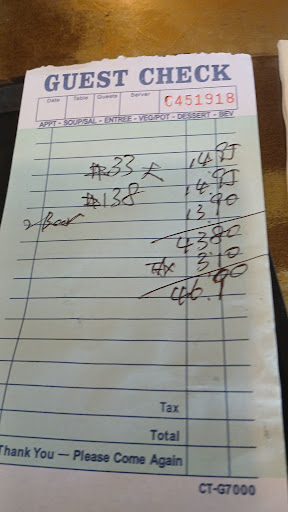 GUEST CHECK
Date Table Guests Server C451918
APPT - SOUP/SAL - ENTREE - VEG/POT - DESSERT - BEV
#33 14.95
#138 14.95
2 Beer 13.90
43.80
tax 3.10
46.90
Tax
Total
Thank You — Please Come Again
CT-G7000